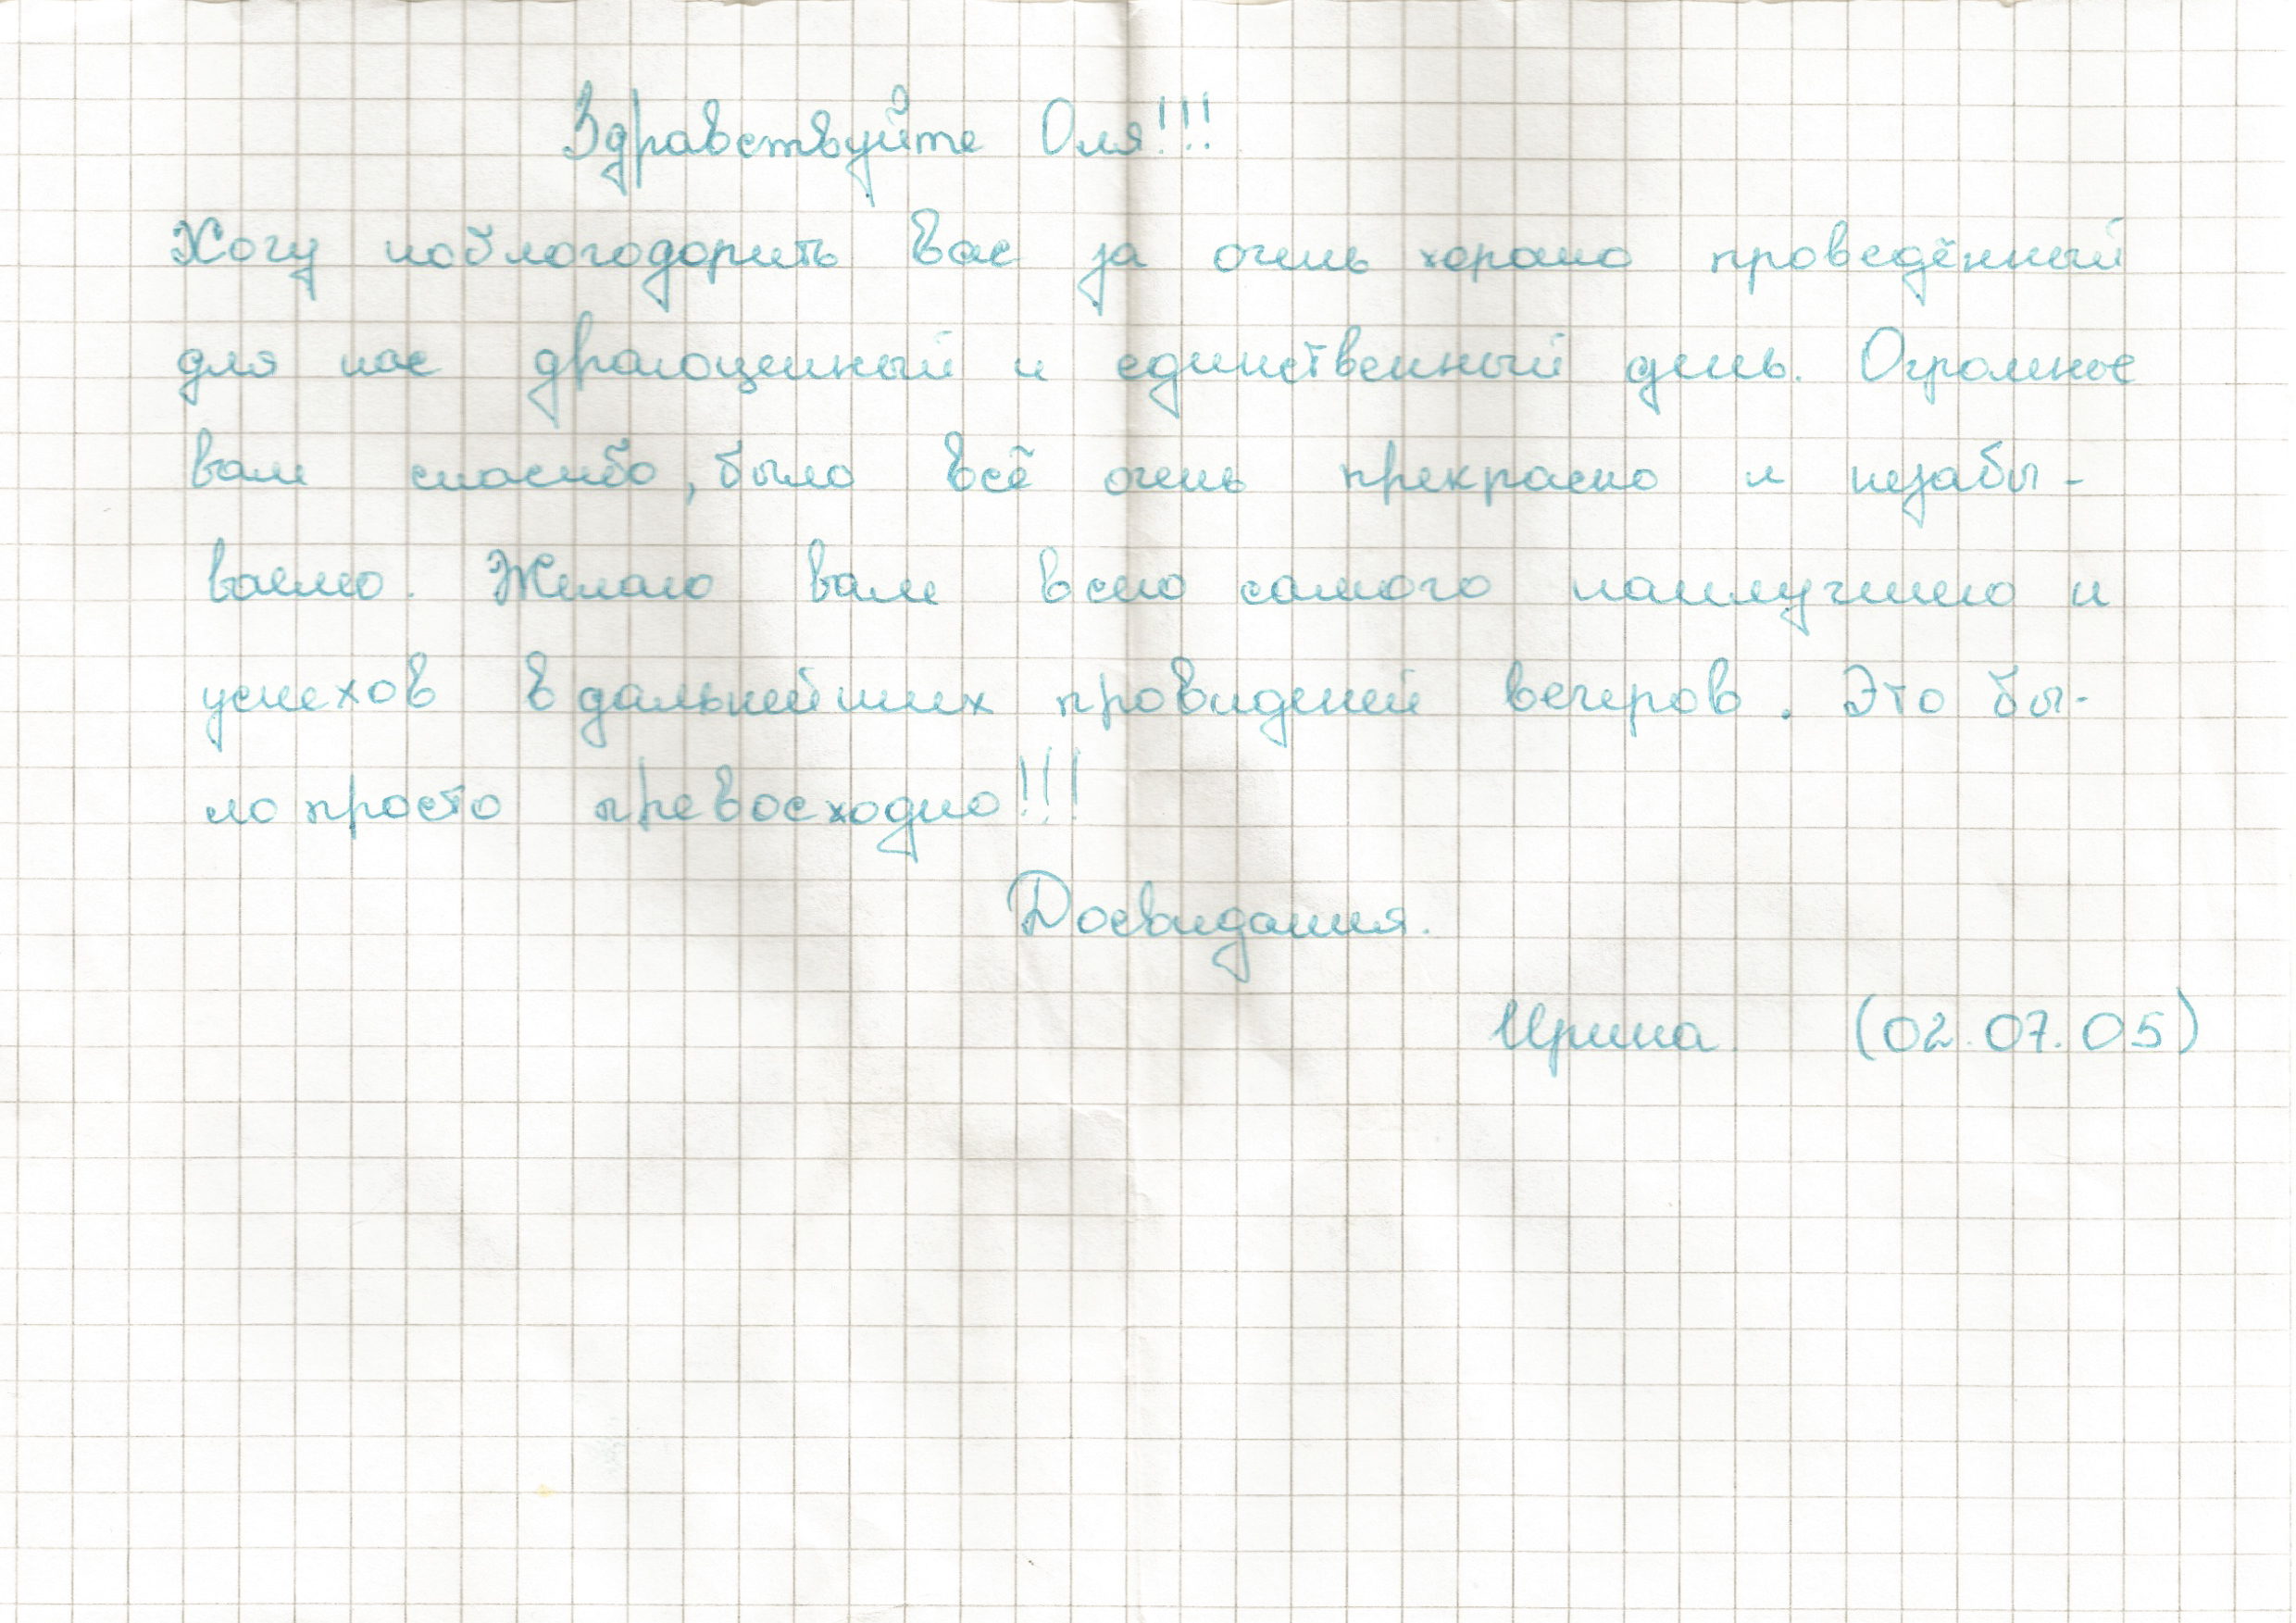 Здравствуйте Оля!!!
Хочу поблогодорить Вас за очень хорошо проведённый
для нас драгоценный и единственный день. Огромное
вам спасибо, было всё очень прекрасно и незабы-
ваемо. Желаю вам всего самого наилучшего и
успехов в дальнейших провидений вечеров. Это бы-
ло просто превосходно!!!
Досвидания.
Ирина (02.07.05)